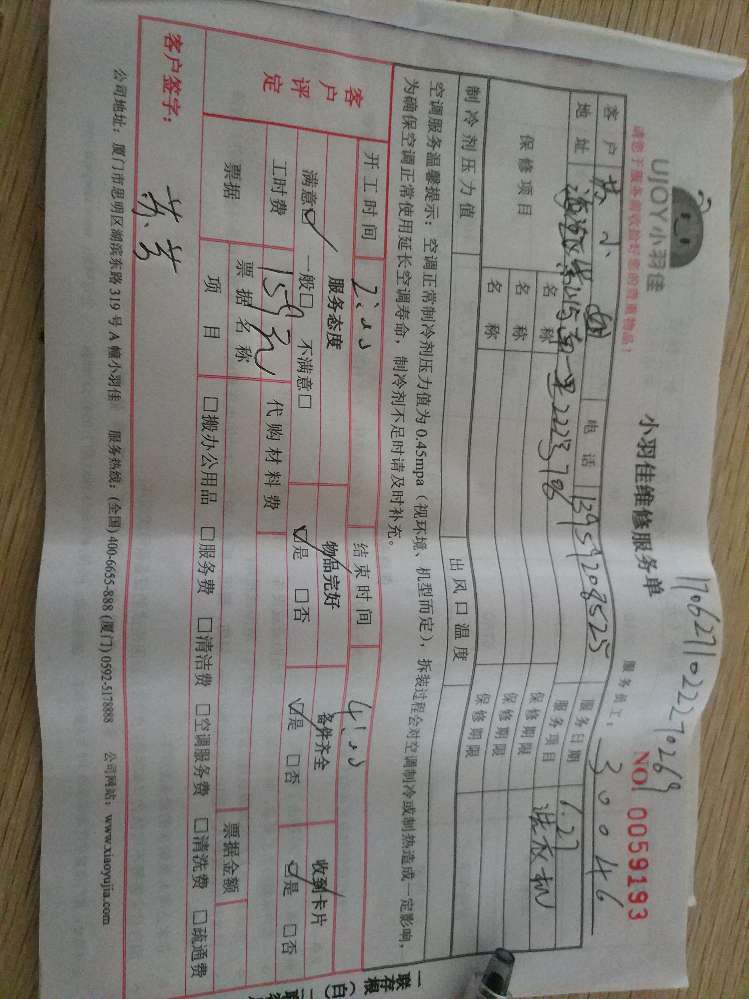 17062711022270269
UJOY小羽佳
小羽佳维修服务单
NO! 0059193
请您于服务前收捡好您的贵重物品!
服务员工: 30046
客户 苏小姐 电话 13959208525 服务日期 6.27
地址 海沧区 南一里222号706 服务项目 洗衣机
保修项目 名称 保修期限
名称 保修期限
名称 保修期限
制冷剂压力值 出风口温度
空调服务温馨提示:空调正常制冷剂压力值为0.45mpa(视环境、机型而定),拆装过程会对空调制冷或制热造成一定影响,
为确保空调正常使用延长空调寿命,制冷剂不足时请及时补充。
开工时间 2:00 结束时间 4:00
客户评定
服务态度 物品完好 备件齐全 收到卡片
满意☑ 一般□ 不满意□ ☑是 □否 ☑是 □否 ☑是 □否
工时费 159元 代购材料费
票据 票据名称 票据金额
项目 □搬办公用品 □服务费 □清洁费 □空调服务费 □清洗费 □疏通费
客户签字:
公司地址:厦门市思明区湖滨东路319号A幢小羽佳 服务热线:(全国) 400-6655-888 (厦门) 0592-5178888 公司网站:www.xiaoyujia.com
一联存根(白)